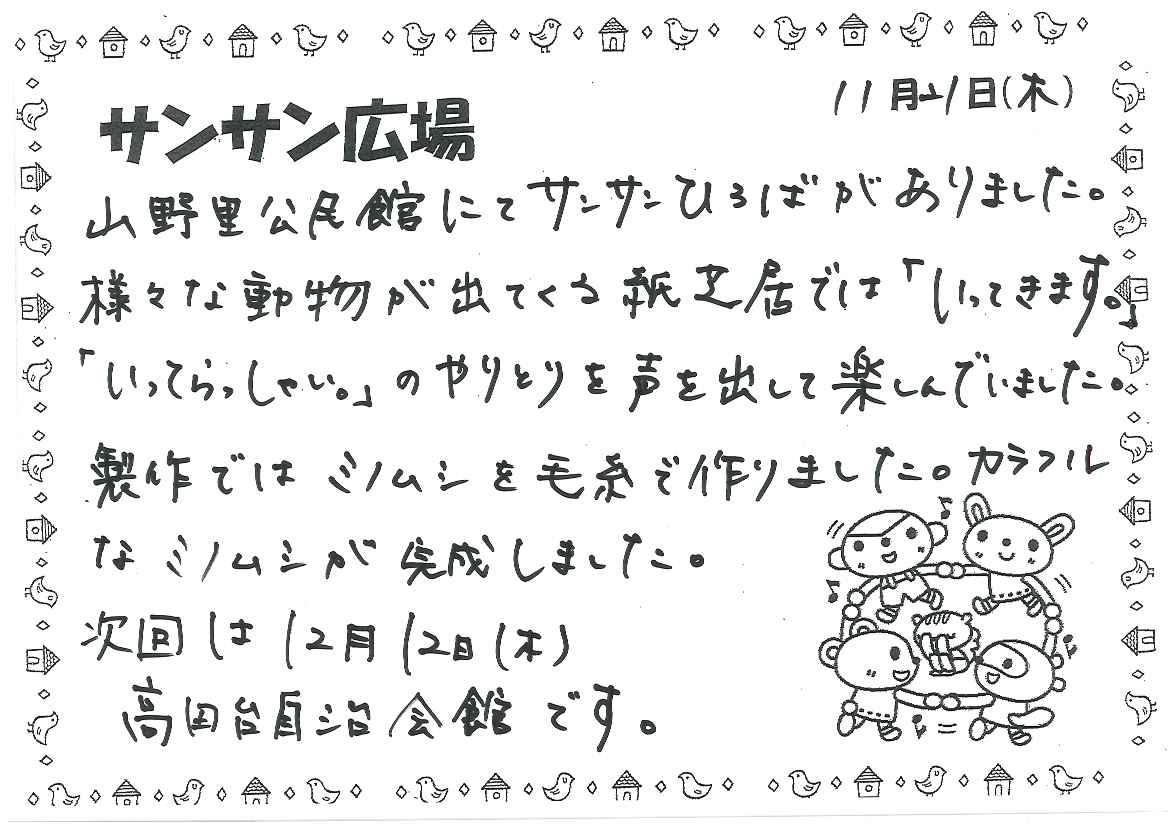 11月21日(木)
サンサン広場
山野里公民館にてサンサンひろばがありました。
様々な動物が出てくる紙芝居では「いってきます。」
「いってらっしゃい。」のやりとりを声を出して楽しんでいました。
製作ではミノムシを毛糸で作りました。カラフル
なミノムシが完成しました。
次回は12月12日(木)
高田台自治会館です。